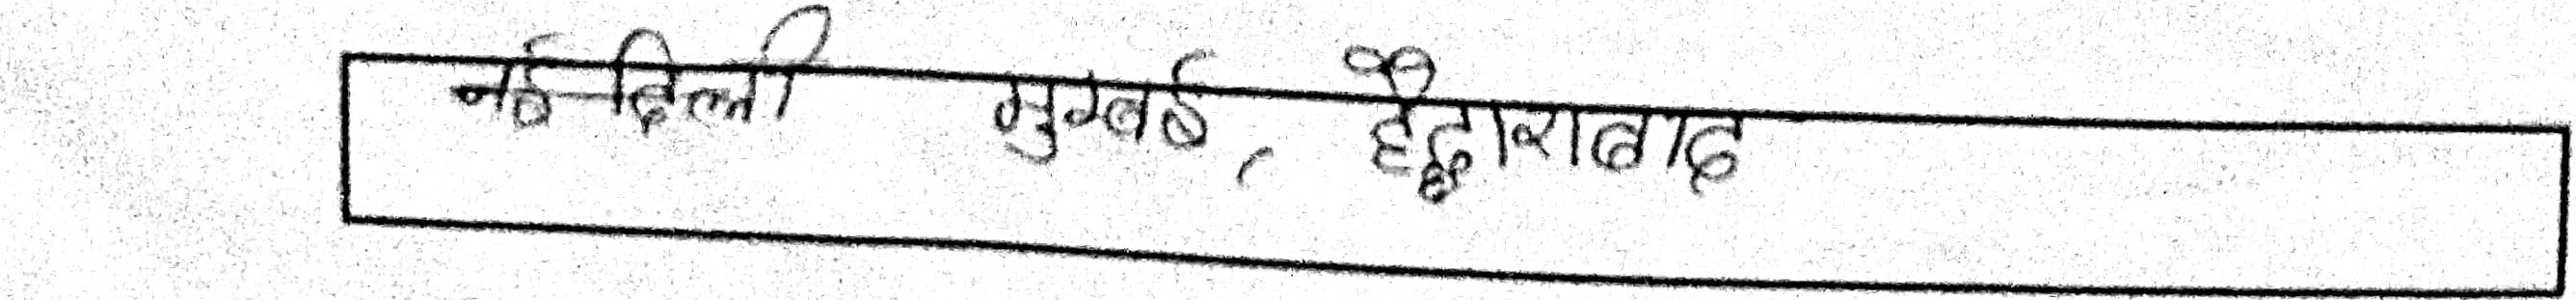 नई दिल्ली मुम्बई, हैद्राराबाद